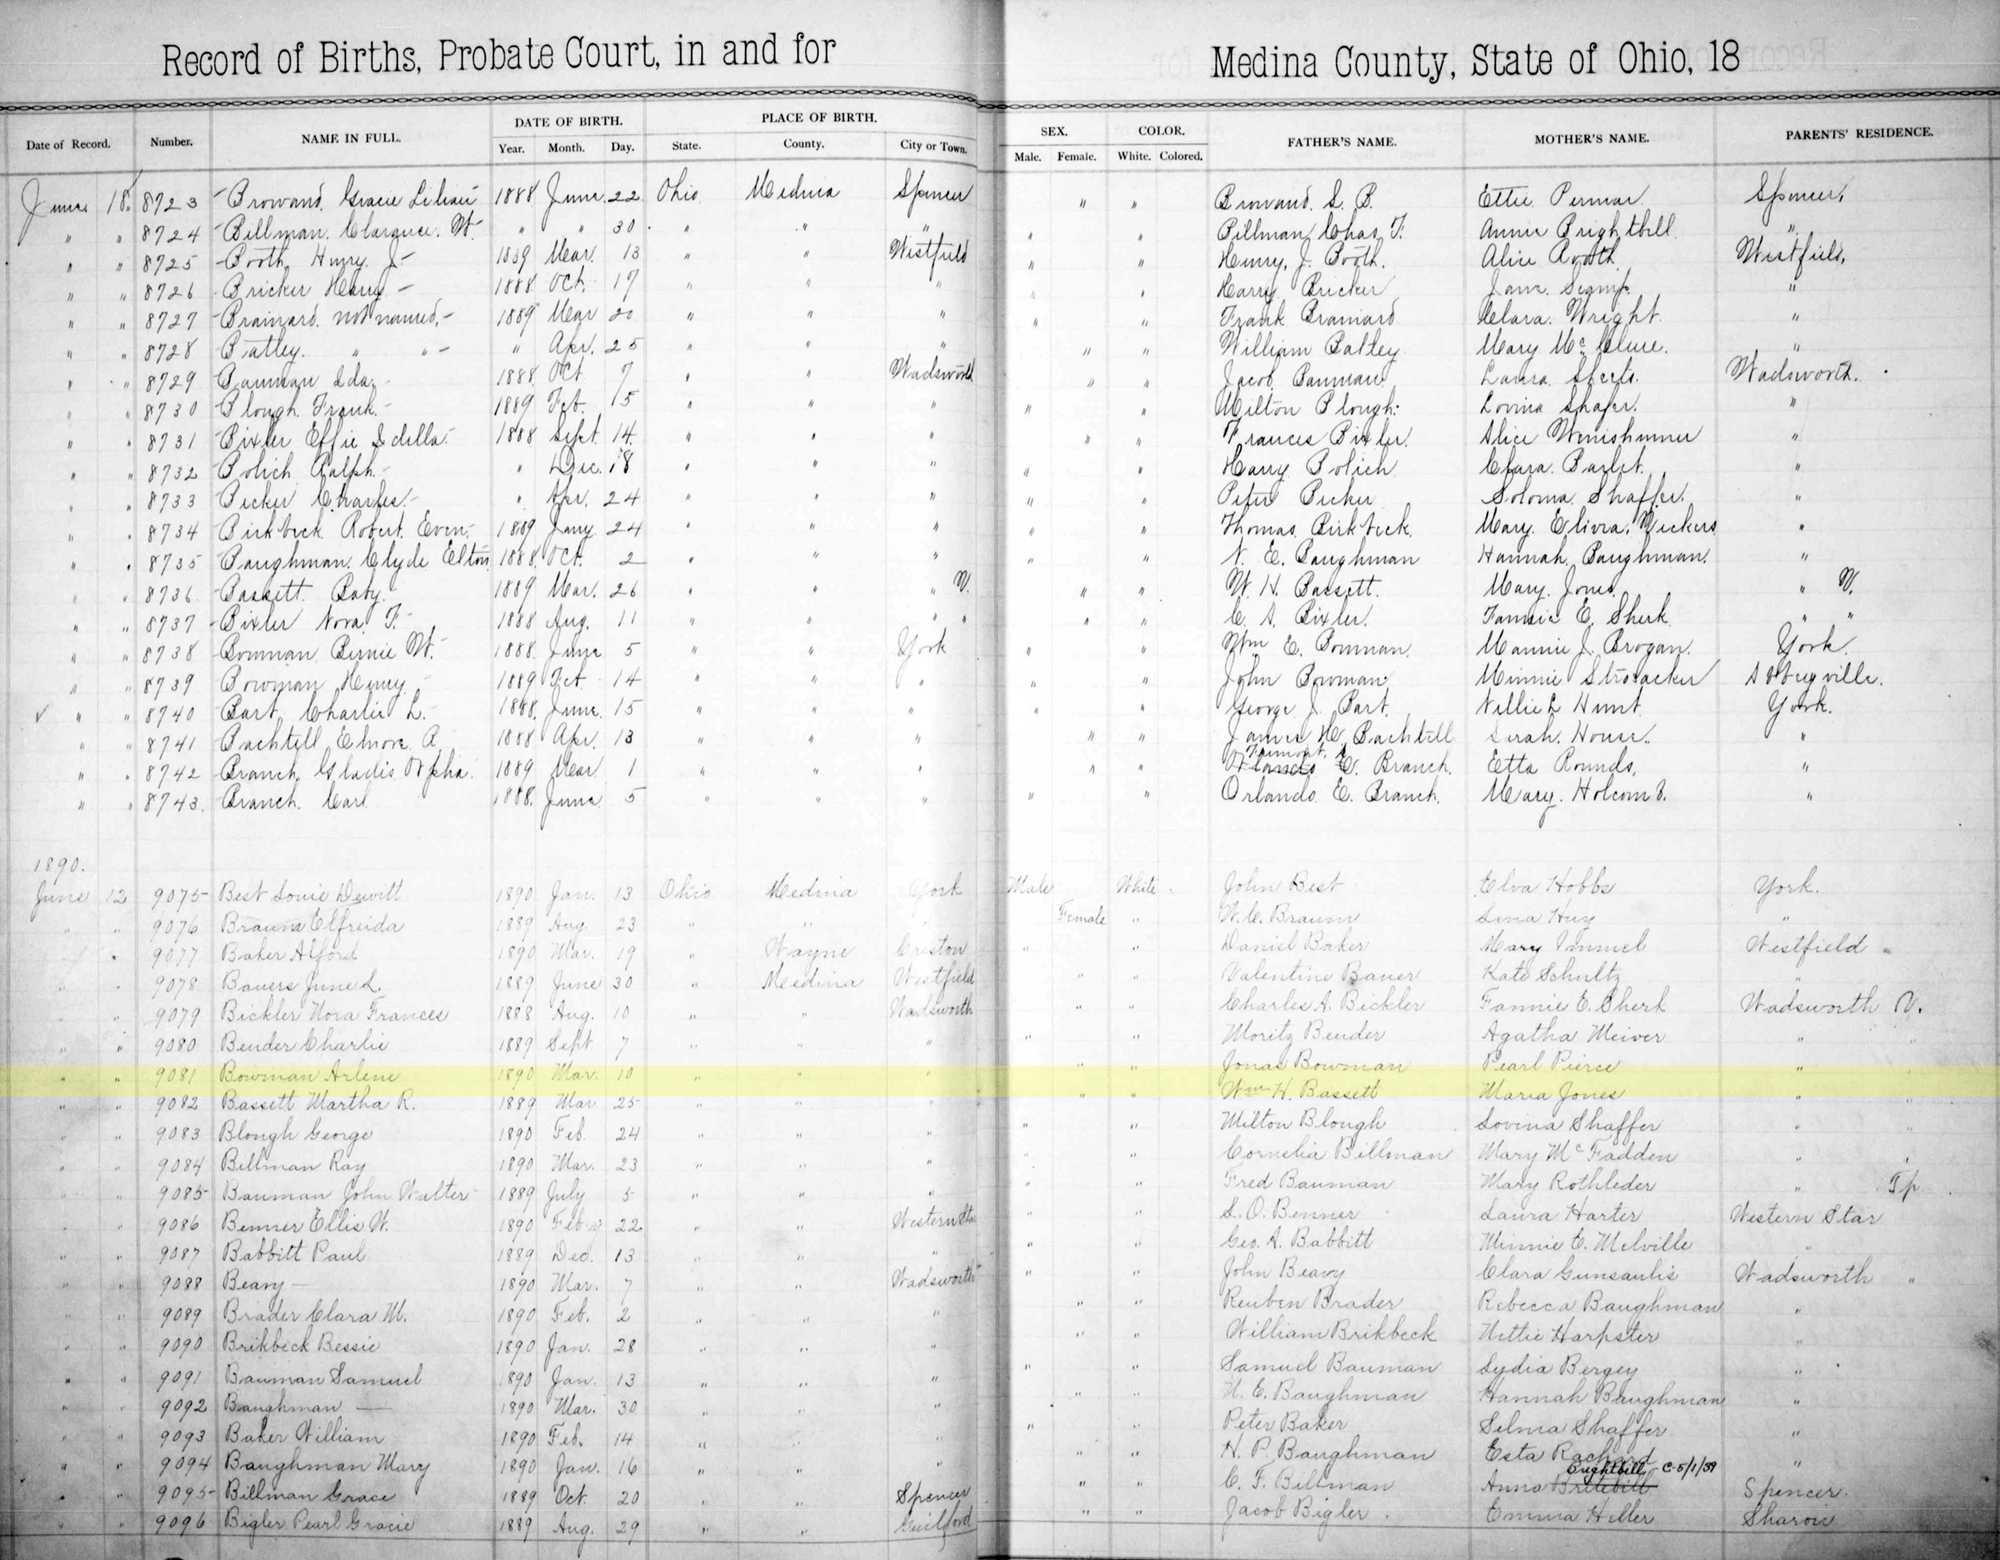 Record of Births, Probate Court, in and for Medina County, State of Ohio, 18
DATE OF BIRTH. PLACE OF BIRTH. SEX. COLOR.
Date of Record. Number. NAME IN FULL. Year. Month. Day. State. County. City or Town. Male. Female. White. Colored. FATHER'S NAME. MOTHER'S NAME. PARENTS' RESIDENCE.
June 18. 8723 Browand. Gracie Lilian 1888 June 22 Ohio Medina Spencer " " Browand. S. B. Ettie Permar. Spencer.
" " 8724 Billman. Clarence. W. " " 30 " " " " " Billman, Chas. F. Annie Brightbill "
" " 8725 Booth Henry J. 1889 Mar. 13 " " Westfield " " Henry. J. Booth. Alice Booth. Westfield.
" " 8726 Bricker Harry 1888 Oct. 17 " " " " " Harry Bricker Jane "
" " 8727 Brainard. not named. 1889 Mar 20 " " " " " Frank Brainard Clara. Wright. "
" " 8728 Batley. " " " Apr. 25 " " " " " William Batley Mary McClure. "
" " 8729 Bauman Ida 1888 Oct 7 " " Wadsworth " " Jacob Bauman Laura Wadsworth.
" " 8730 Blough. Frank. 1889 Feb. 5 " " " " " Milton Blough. Lovina Shafer. "
" " 8731 Bixler Effie Idella. 1888 Sept. 14. " " " " " Frances Bixler. Alice "
" " 8732 Bolich Ralph. " Dec. 18 " " " " " Harry Bolich Clara. "
" " 8733 Becker Charles. " Apr. 24 " " " " " Peter Becker Soloma Shaffer. "
" " 8734 Birkbeck Robert. Even. 1889 Jany. 24 " " " " " Thomas. Birkbeck. Mary. "
" " 8735 Baughman. Clyde Elton 1888. Oct. 2 " " " " " N. E. Baughman Hannah. Baughman. "
" " 8736 Bassett. Baby. 1889 Mar. 26 " " " V. " " W. H. Bassett. Mary. Jones. " V.
" " 8737 Bixler Nora. F. 1888 Aug. 11 " " " " " " C. A. Bixler. Fannie E. Sherk " "
" " 8738 Bowman Bernie W. 1888. June 5 " " York " " Wm E. Bowman. Mannie J. Brogan. York.
" " 8739 Bowman Henry 1889 14 " " " " " John Bowman Minnie Strosacker Abbeyville.
" " 8740 Bart. Charlie L. 1888. June. 15 " " " " " George J. Bart. Nellie Hunt York.
" " 8741 Bachtell Elmore A 1888 Apr. 13 " " " " " James H. Bachtell Sarah. House. "
" " 8742 Branch Gladis Orpha. 1889 Mar 1 " " " " " E. Branch. Etta Rounds. "
" " 8743. Branch. Carl 1888. June 5 " " " " " Orlando. E. Branch. Mary. Holcomb. "
1890.
June 12 9075 Best Louie Dewitt 1890 Jan. 13 Ohio Medina York Male White John Best Elva Hobbs York.
" " 9076 Elfreida 1889 Aug. 23 " " " Female " W. C. Huy "
" " 9077 Baker Alford 1890 Mar. 19 " Wayne Creston " " Daniel Baker Mary Westfield
" " 9078 Bauers June L. 1889 June 30 " Medina Westfield " " Valentine Bauer Kate Schultz "
" " 9079 Bickler Nora Frances 1888 Aug. 10 " " Wadsworth " " Charles A. Bickler Fannie E. Sherk Wadsworth V.
" " 9080 Bender Charlie 1889 Sept 7 " " " " " Moritz Bender Agatha Meiver "
" " 9081 Bowman Arlene 1890 Mar. 10 " " " " " Jonas Bowman Pearl Pierce "
" " 9082 Bassett Martha R. 1889 Mar 25 " " " " " Wm H. Bassett Maria Jones " "
" " 9083 Blough George 1890 Feb. 24 " " " " " Milton Blough Lovina Shaffer "
" " 9084 Billman Ray 1890 Mar. 23 " " " " " Cornelia Billman Mary McFadden " "
" " 9085 Bauman John Walter 1889 July 5 " " " " " Fred Bauman Mary Rothleder " Tp.
" " 9086 Benner Ellis W. 1890 Feb 22 " " Western Sta " " S. O. Benner Laura Harter Western Star
" " 9087 Babbitt Paul 1889 Dec. 13 " " " " " Geo. A. Babbitt Minnie E. Melville "
" " 9088 Beavy — 1890 Mar. 7 " " Wadsworth " " John Beavy Clara Gunsaulis Wadsworth "
" " 9089 Brader Clara M. 1890 Feb. 2 " " " " " Reuben Brader Rebecca Baughman "
" " 9090 Brikbeck Bessie 1890 Jan. 28 " " " " " William Brikbeck Nettie Harpster "
" " 9091 Bauman Samuel 1890 Jan. 13 " " " " " Samuel Bauman Lydia Bergey "
" " 9092 Baughman — 1890 Mar. 30 " " " " " N. E. Baughman Hannah Baughman "
" " 9093 Baker William 1890 Feb. 14 " " " " " Peter Baker Selma Shaffer "
" " 9094 Baughman Mary 1890 Jan. 16 " " " " " H. P. Baughman Esta "
Brightbill C-5/1/39
" " 9095 Billman Grace 1889 Oct. 20 " " Spencer " " C. F. Billman Anna Britebill Spencer.
" " 9096 Bigler Pearl Gracie 1889 Aug. 29 " " Guilford " " Jacob Bigler Emma Hiller Sharon